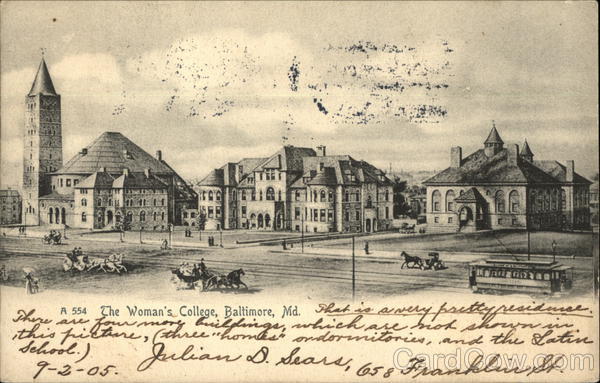 A 554 The Woman's College, Baltimore, Md.
That is a very pretty residence.
There are four more buildings, which are not shown in
this picture, (three "homes" or dormitories, and the Latin
School.)
Julian D. Sears,
9-2-05.
658 Franklin St
CardCow.com